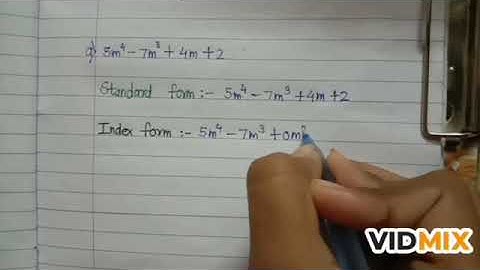 a) 5m⁴ - 7m³ + 4m + 2
Standard form :- 5m⁴ - 7m³ + 4m + 2
Index form :- 5m⁴ - 7m³ + 0m²
VIDMIX